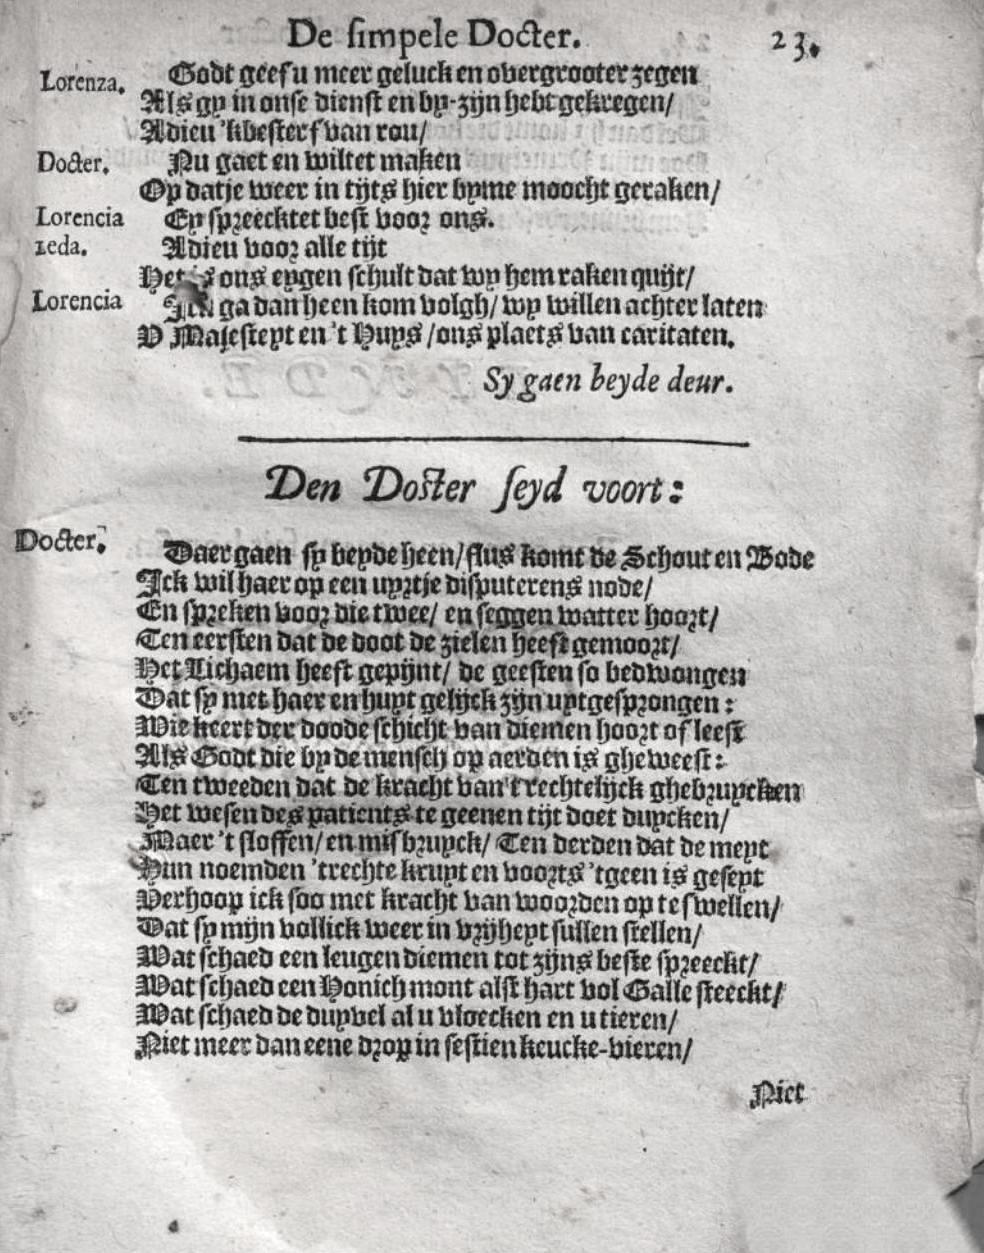 De simpele Docter. 23.
Lorenza. Godt geef u meer geluck en overgrooter zegen
Als gy in onse dienst en by-zijn hebt gekregen/
Adieu 'kbesterf van rou/
Docter. Nu gaet en wiltet maken
Op datje weer in tijts hier byme moocht geraken/
Lorencia Ey spreecktet best voor ons.
zeda. Adieu voor alle tijt
Het is ons eygen schult dat wy hem raken quijt/
Lorencia Ick ga dan heen kom volgh/ wy willen achter laten
V Majesteyt en 't Huys /ons plaets van caritaten.
Sy gaen beyde deur.
Den Docter seyd voort:
Docter. Daer gaen sy beyde heen/flus komt de Schout en Bode
Ick wil haer op een uyrtje disputerens node/
En spreken voor die twee/ en seggen watter hoort/
Ten eersten dat de doot de zielen heeft gemoort/
Het Lichaem heeft gepijnt/ de geesten so bedwongen
Dat sy met haer en huyt gelijck zijn uytgesprongen:
Wie keert der doode schicht van diemen hoort of leest
Als Godt die by de mensch op aerden is gheweest:
Ten tweeden dat de kracht van't rechtelijck ghebruycken
Het wesen des patients te geenen tijt doet duycken/
Maer 't sloffen/ en misbruyck/ Ten derden dat de meyt
Hun noemden 'trechte kruyt en voorts 'tgeen is geseyt
Verhoop ick soo met kracht van woorden op te swellen/
Dat sy mijn vollick weer in vrijheyt sullen stellen/
Wat schaed een leugen diemen tot zijns beste spreeckt/
Wat schaed een Honich mont alst hart vol Galle steeckt/
Wat schaed de duyvel al u vloecken en u tieren/
Niet meer dan eene drop in sestien keucke-bieren/
Niet